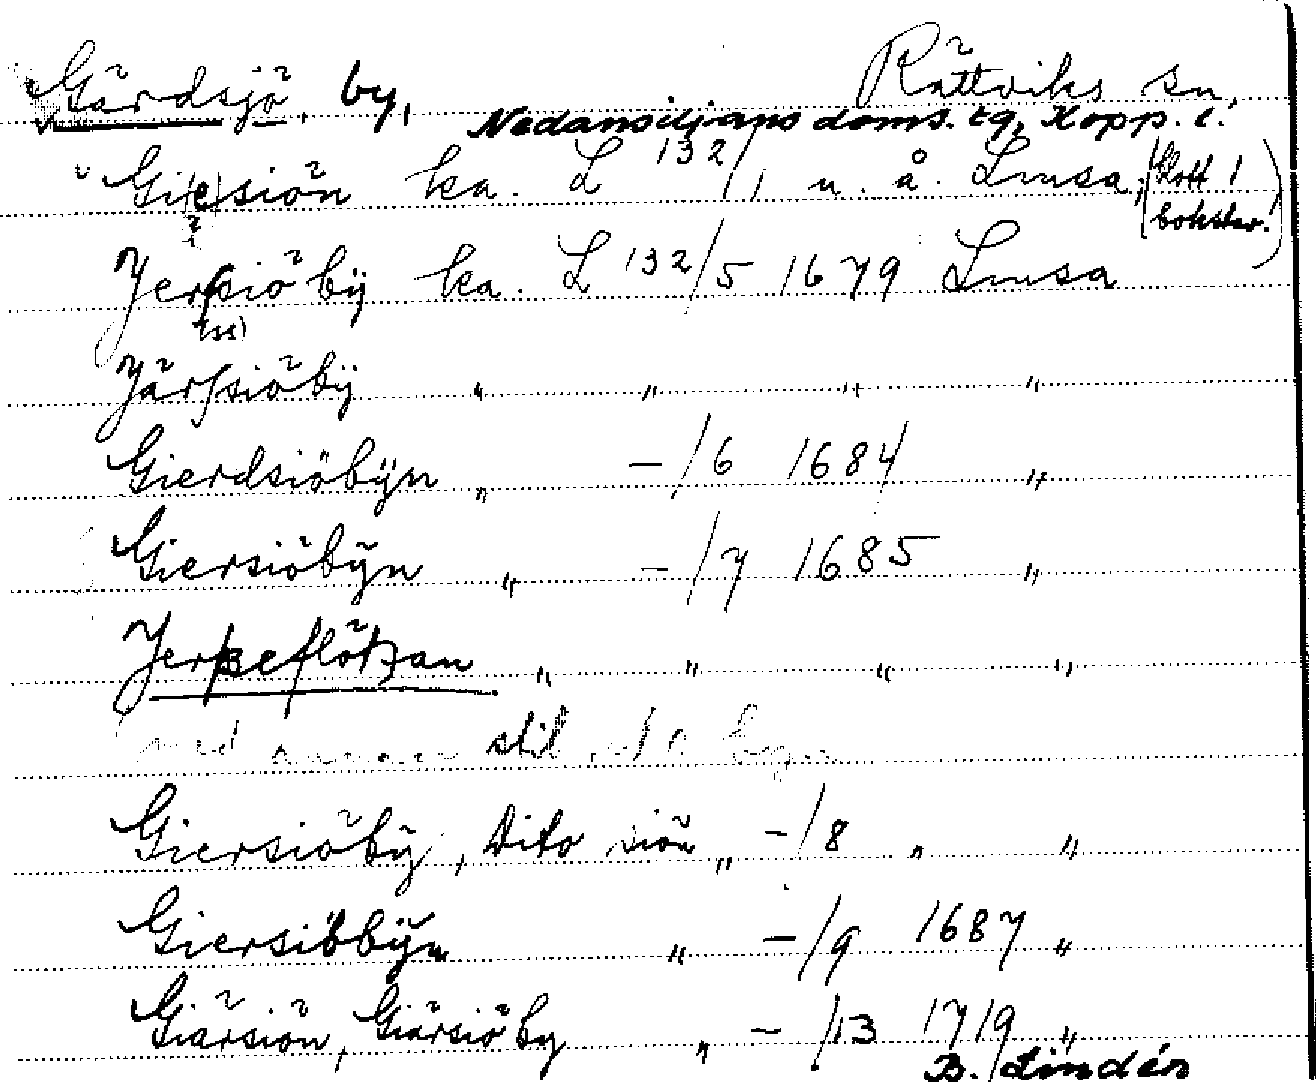 Gärdsjö, by, Rättviks sn,
Nedansiljans doms. tg, Kopp. l.
Gi(e)siön ka. L 132/1 u. å. Limsa, (Rött!
bokstav!)
Jerssiö bÿ ka. L 132/5 1679 Limsa
(ss)
Järssiöbÿ " " " "
Gierdsiöbÿn " - /6 1684 "
Giersiöbÿn " - /7 1685 "
" " " "
med annan stil
Giersiöbÿ, dito siön " - /8 " "
Giersiöbÿn " - /9 1687 "
Giärsiön, Giärsiöby " - /13 1719 "
B. Lindén